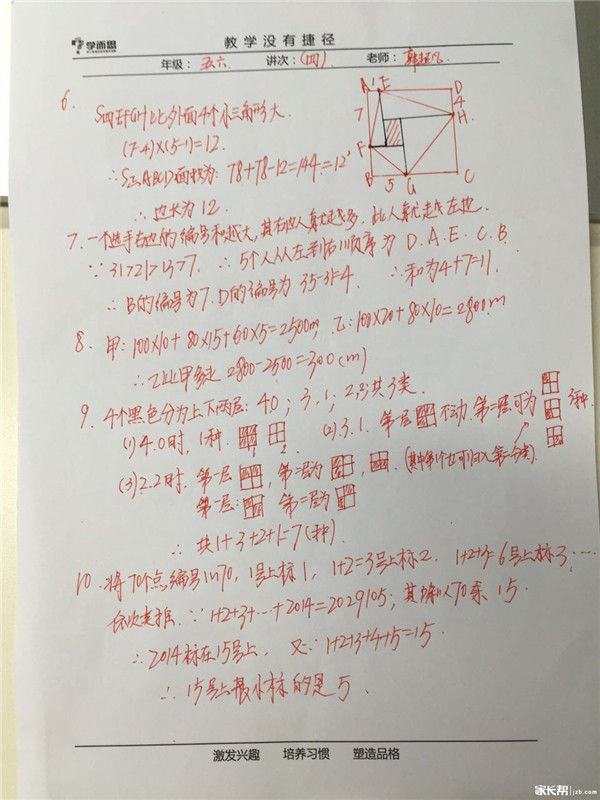 学而思
教学没有捷径
年级：五六 讲次：(四) 老师：
6. S四EFGH比外面4个小三角形大
(7-4)×(5-1)=12.
∴S正ABCD面积为: 78+78-12=144=12²
∴边长为12.
A 1 E D
4
7 H
F
B 5 G C
7. 一个选手右边的编号和越大,其右边人数也越多.此人越左边.
∵31>21>13>7. ∴5个人从左到右顺序为 D.A.E.C.B.
∴B的编号为7.D的编号为 35-31=4. ∴和为4+7=11.
8. 甲: 100×10+80×15+60×5=2500m, 乙: 100×20+80×10=2800m
∴乙比甲多走 2800-2500=300(m)
9. 4个黑色分为上下两层: 4.0; 3.1; 2.2;共3类.
(1)4.0时, 1种. (2).3.1. 第一层 不动.第二层可为 3种.
(3)2.2时. 第一层 , 第二层为 , . (其中第1个也可归入第一分类).
第一层: 第二层为
∴ 共1+3+2+1=7(种).
10. 将70个点,编号1~70, 1号上标1, 1+2=3号上标2. 1+2+3=6号上标3, …
依次类推. ∵1+2+3+…+2014=2029105, 其除以70余 15.
∴2014标在15号上, 又∵1+2+3+4+5=15.
∴15号上最小标的是5.
激发兴趣 培养习惯 塑造品格
家长帮 jzb.com